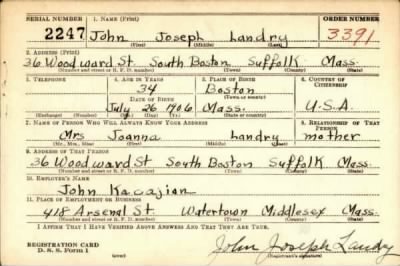 SERIAL NUMBER 1. NAME (Print) ORDER NUMBER
2247 John Joseph Landry 3391
(First) (Middle) (Last)
2. ADDRESS (Print)
36 Woodward St. South Boston Suffolk Mass.
(Number and street or R. F. D. number) (Town) (County) (State)
3. TELEPHONE 4. AGE IN YEARS 5. PLACE OF BIRTH 6. COUNTRY OF CITIZENSHIP
34 Boston
DATE OF BIRTH (Town or county)
July 26 1906 Mass. U.S.A.
(Exchange) (Number) (Mo.) (Day) (Yr.) (State or country)
7. NAME OF PERSON WHO WILL ALWAYS KNOW YOUR ADDRESS 8. RELATIONSHIP OF THAT PERSON
Mrs Joanna Landry mother
(Mr., Mrs., Miss) (First) (Middle) (Last)
9. ADDRESS OF THAT PERSON
36 Woodward St South Boston Suffolk Mass.
(Number and street or R. F. D. number) (Town) (County) (State)
10. EMPLOYER'S NAME
John Kacajian
11. PLACE OF EMPLOYMENT OR BUSINESS
418 Arsenal St. Watertown Middlesex Mass.
(Number and street or R. F. D. number) (Town) (County) (State)
I AFFIRM THAT I HAVE VERIFIED ABOVE ANSWERS AND THAT THEY ARE TRUE.
REGISTRATION CARD
D. S. S. Form 1
John Joseph Landry
(Registrant's signature)